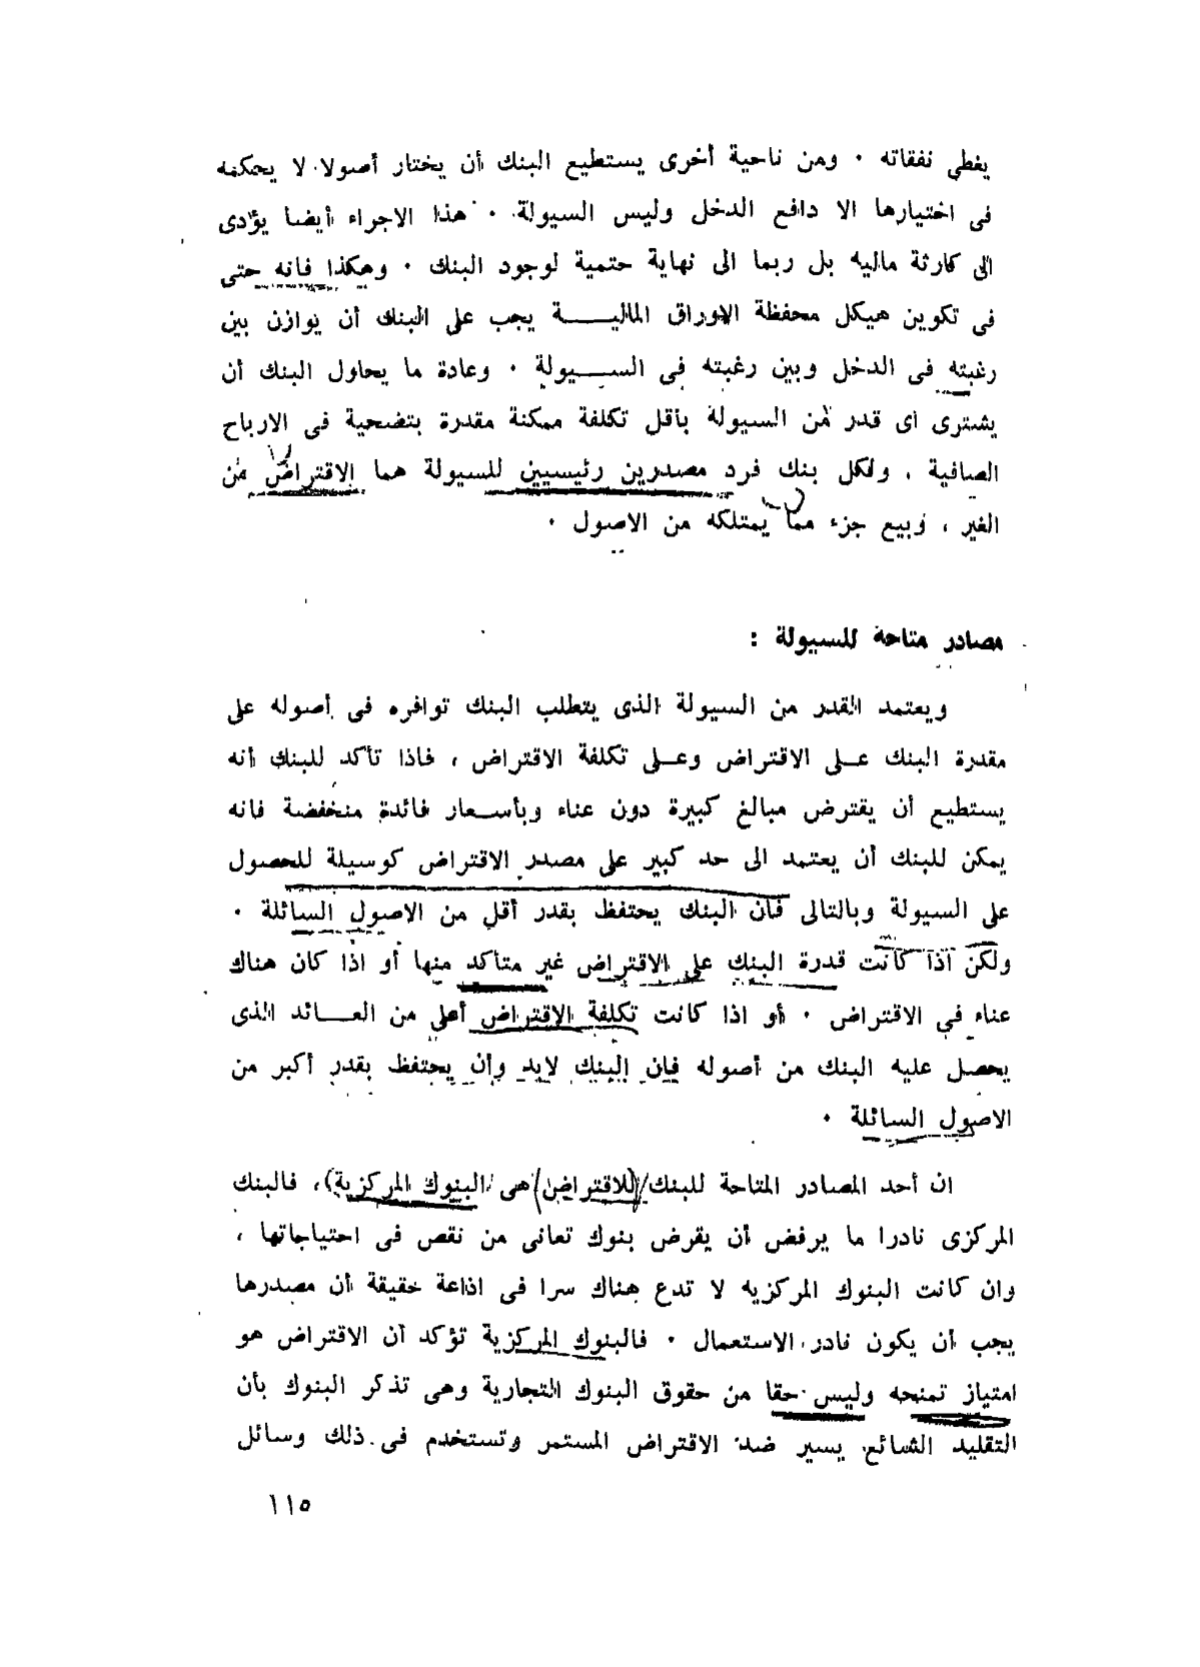 يغطي نفقاته ٠ ومن ناحية أخرى يستطيع البنك أن يختار أصولا لا يحكمه
فى اختيارها الا دافع الدخل وليس السيولة ٠ هذا الاجراء أيضا يؤدى
الى كارثة ماليه بل ربما الى نهاية حتمية لوجود البنك ٠ وهكذا فانه حتى
فى تكوين هيكل محفظة الاوراق الماليـــــة يجب على البنك أن يوازن بين
رغبته فى الدخل وبين رغبته فى الســـيولة ٠ وعادة ما يحاول البنك أن
يشترى اى قدر من السيولة بأقل تكلفة ممكنة مقدرة بتضحية فى الارباح
الصافية ، ولكل بنك فرد مصدرين رئيسيين للسيولة هما الاقتراض من
الغير ، وبيع جزء مما يمتلكه من الاصول ٠
مصادر متاحة للسيولة :
ويعتمد القدر من السيولة الذى يتطلب البنك توافره فى أصوله على
مقدرة البنك عــلى الاقتراض وعــلى تكلفة الاقتراض ، فاذا تأكد للبنك أنه
يستطيع أن يقترض مبالغ كبيرة دون عناء وبأســعار فائدة منخفضة فانه
يمكن للبنك أن يعتمد الى حد كبير على مصدر الاقتراض كوسيلة للحصول
على السيولة وبالتالى فان البنك يحتفظ بقدر أقل من الاصول السائلة ٠
ولكن اذا كانت قدرة البنك على الاقتراض غير متأكد منها أو اذا كان هناك
عناء في الاقتراض ٠ أو اذا كانت تكلفة الاقتراض أعلى من العـــائد الذى
يحصل عليه البنك من أصوله فان البنك لابد وأن يحتفظ بقدر أكبر من
الاصول السائلة ٠
ان أحد المصادر المتاحة للبنك (للاقتراض) هى (البنوك المركزية) ، فالبنك
المركزى نادرا ما يرفض أن يقرض بنوك تعانى من نقص فى احتياجاتها ،
وان كانت البنوك المركزيه لا تدع هناك سرا فى اذاعة حقيقة أن مصدرها
يجب أن يكون نادر الاستعمال ٠ فالبنوك المركزية تؤكد أن الاقتراض هو
امتياز تمنحه وليس حقا من حقوق البنوك التجارية وهى تذكر البنوك بأن
التقليد الشائع يسير ضد الاقتراض المستمر وتستخدم فى ذلك وسائل
١١٥